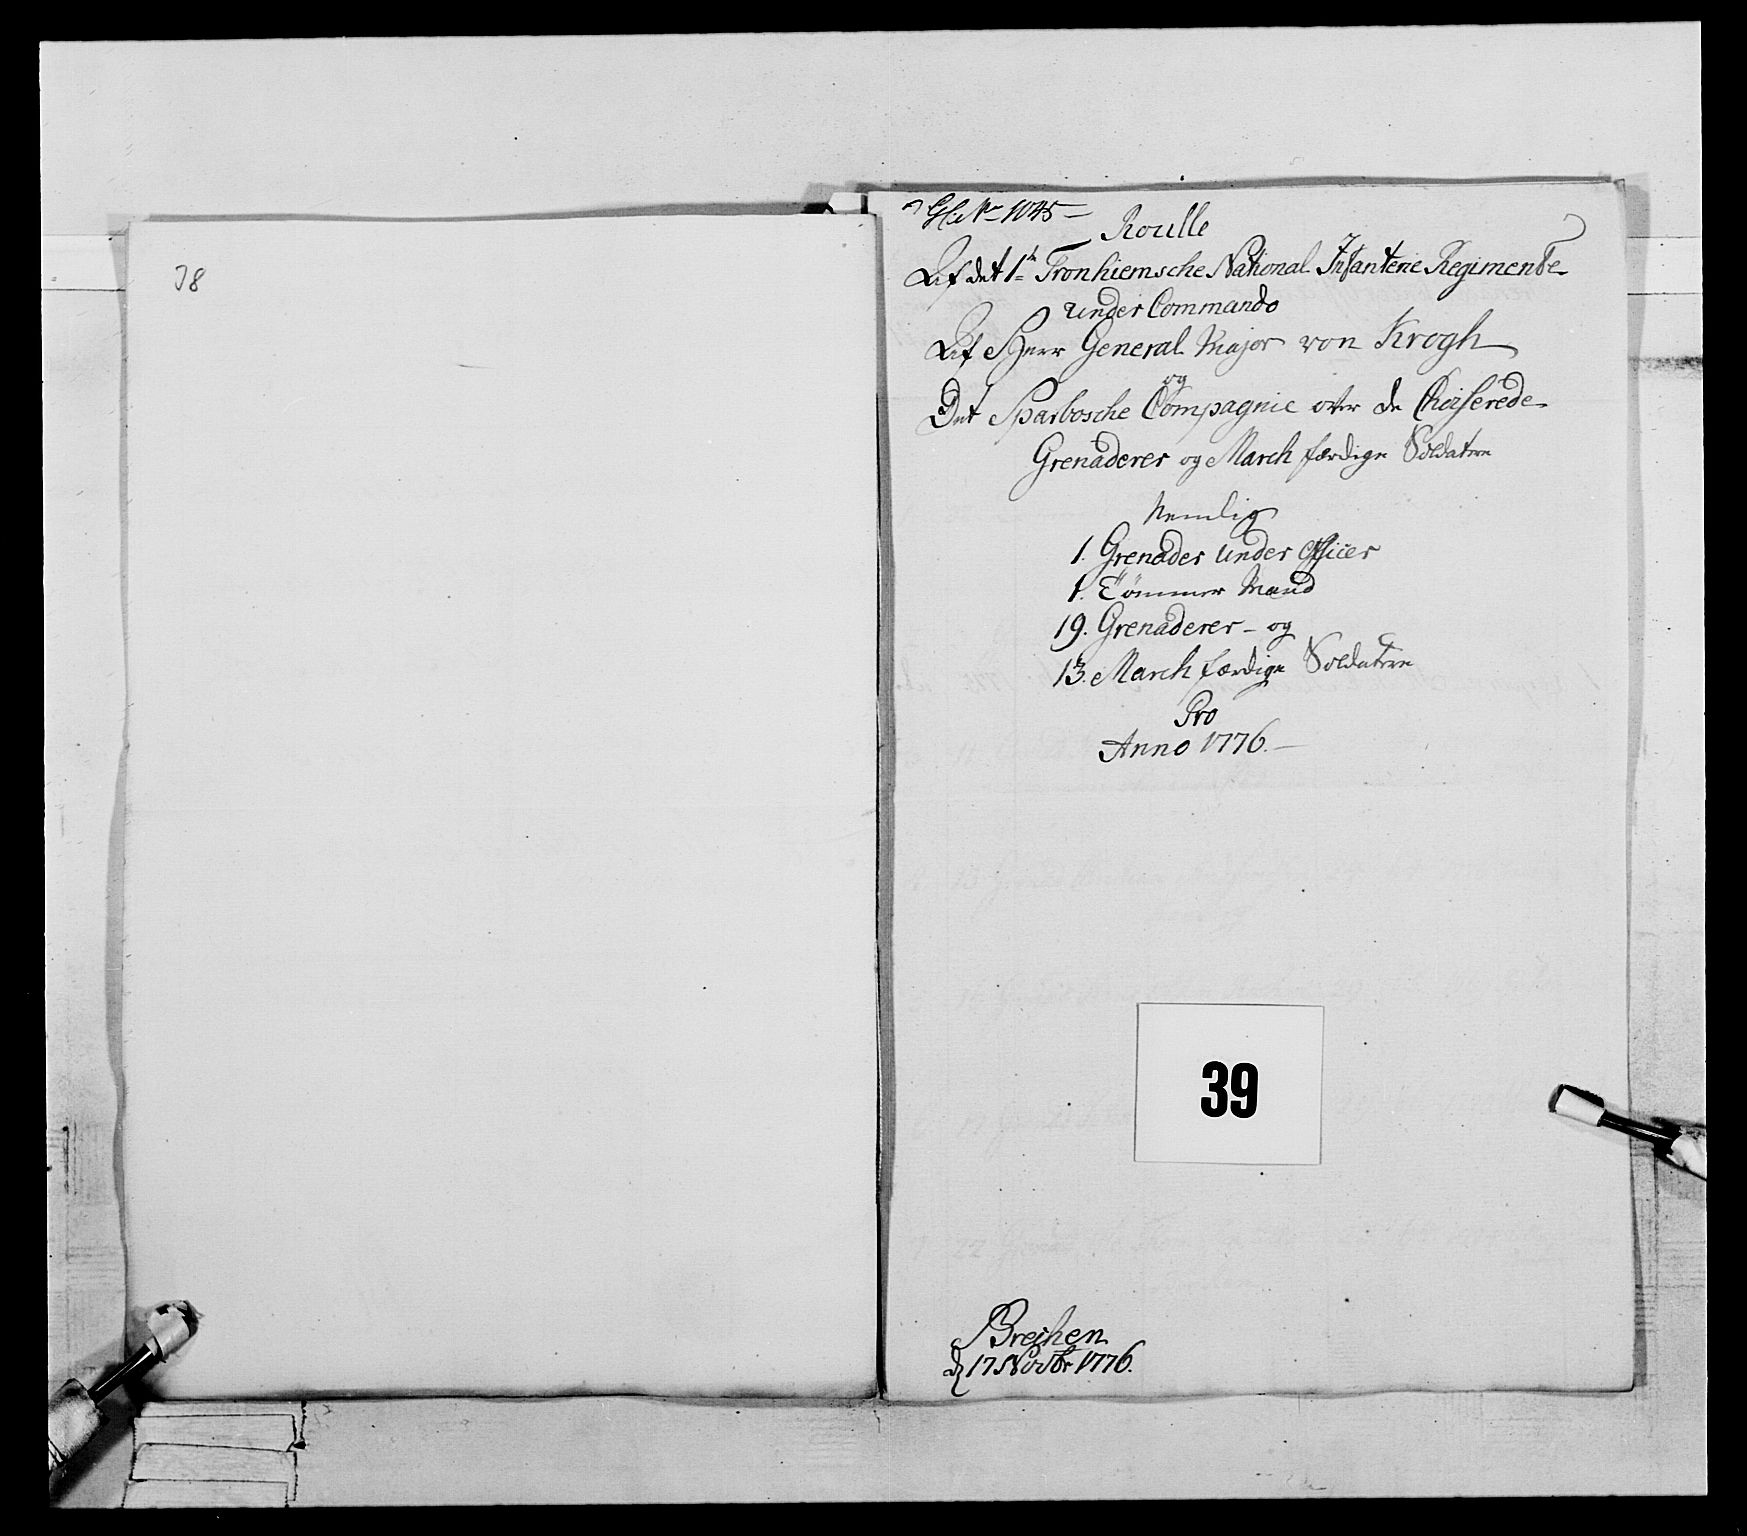 38
No 1045
Roulle
Af det 1te Tronhiemsche National Infanterie Regimente
under Commando
Af Herr General Major von Krogh
og
Det Sparbosche Compagnie over de Choiserede
Grenaderer og March færdige Soldatere
Nemlig
1. Grenader under Officer
1. Tömmer Mand
19. Grenaderer - og
13. March færdige Soldatere
Pro
Anno 1776.
39
Breihen
d 17 Novbr 1776.